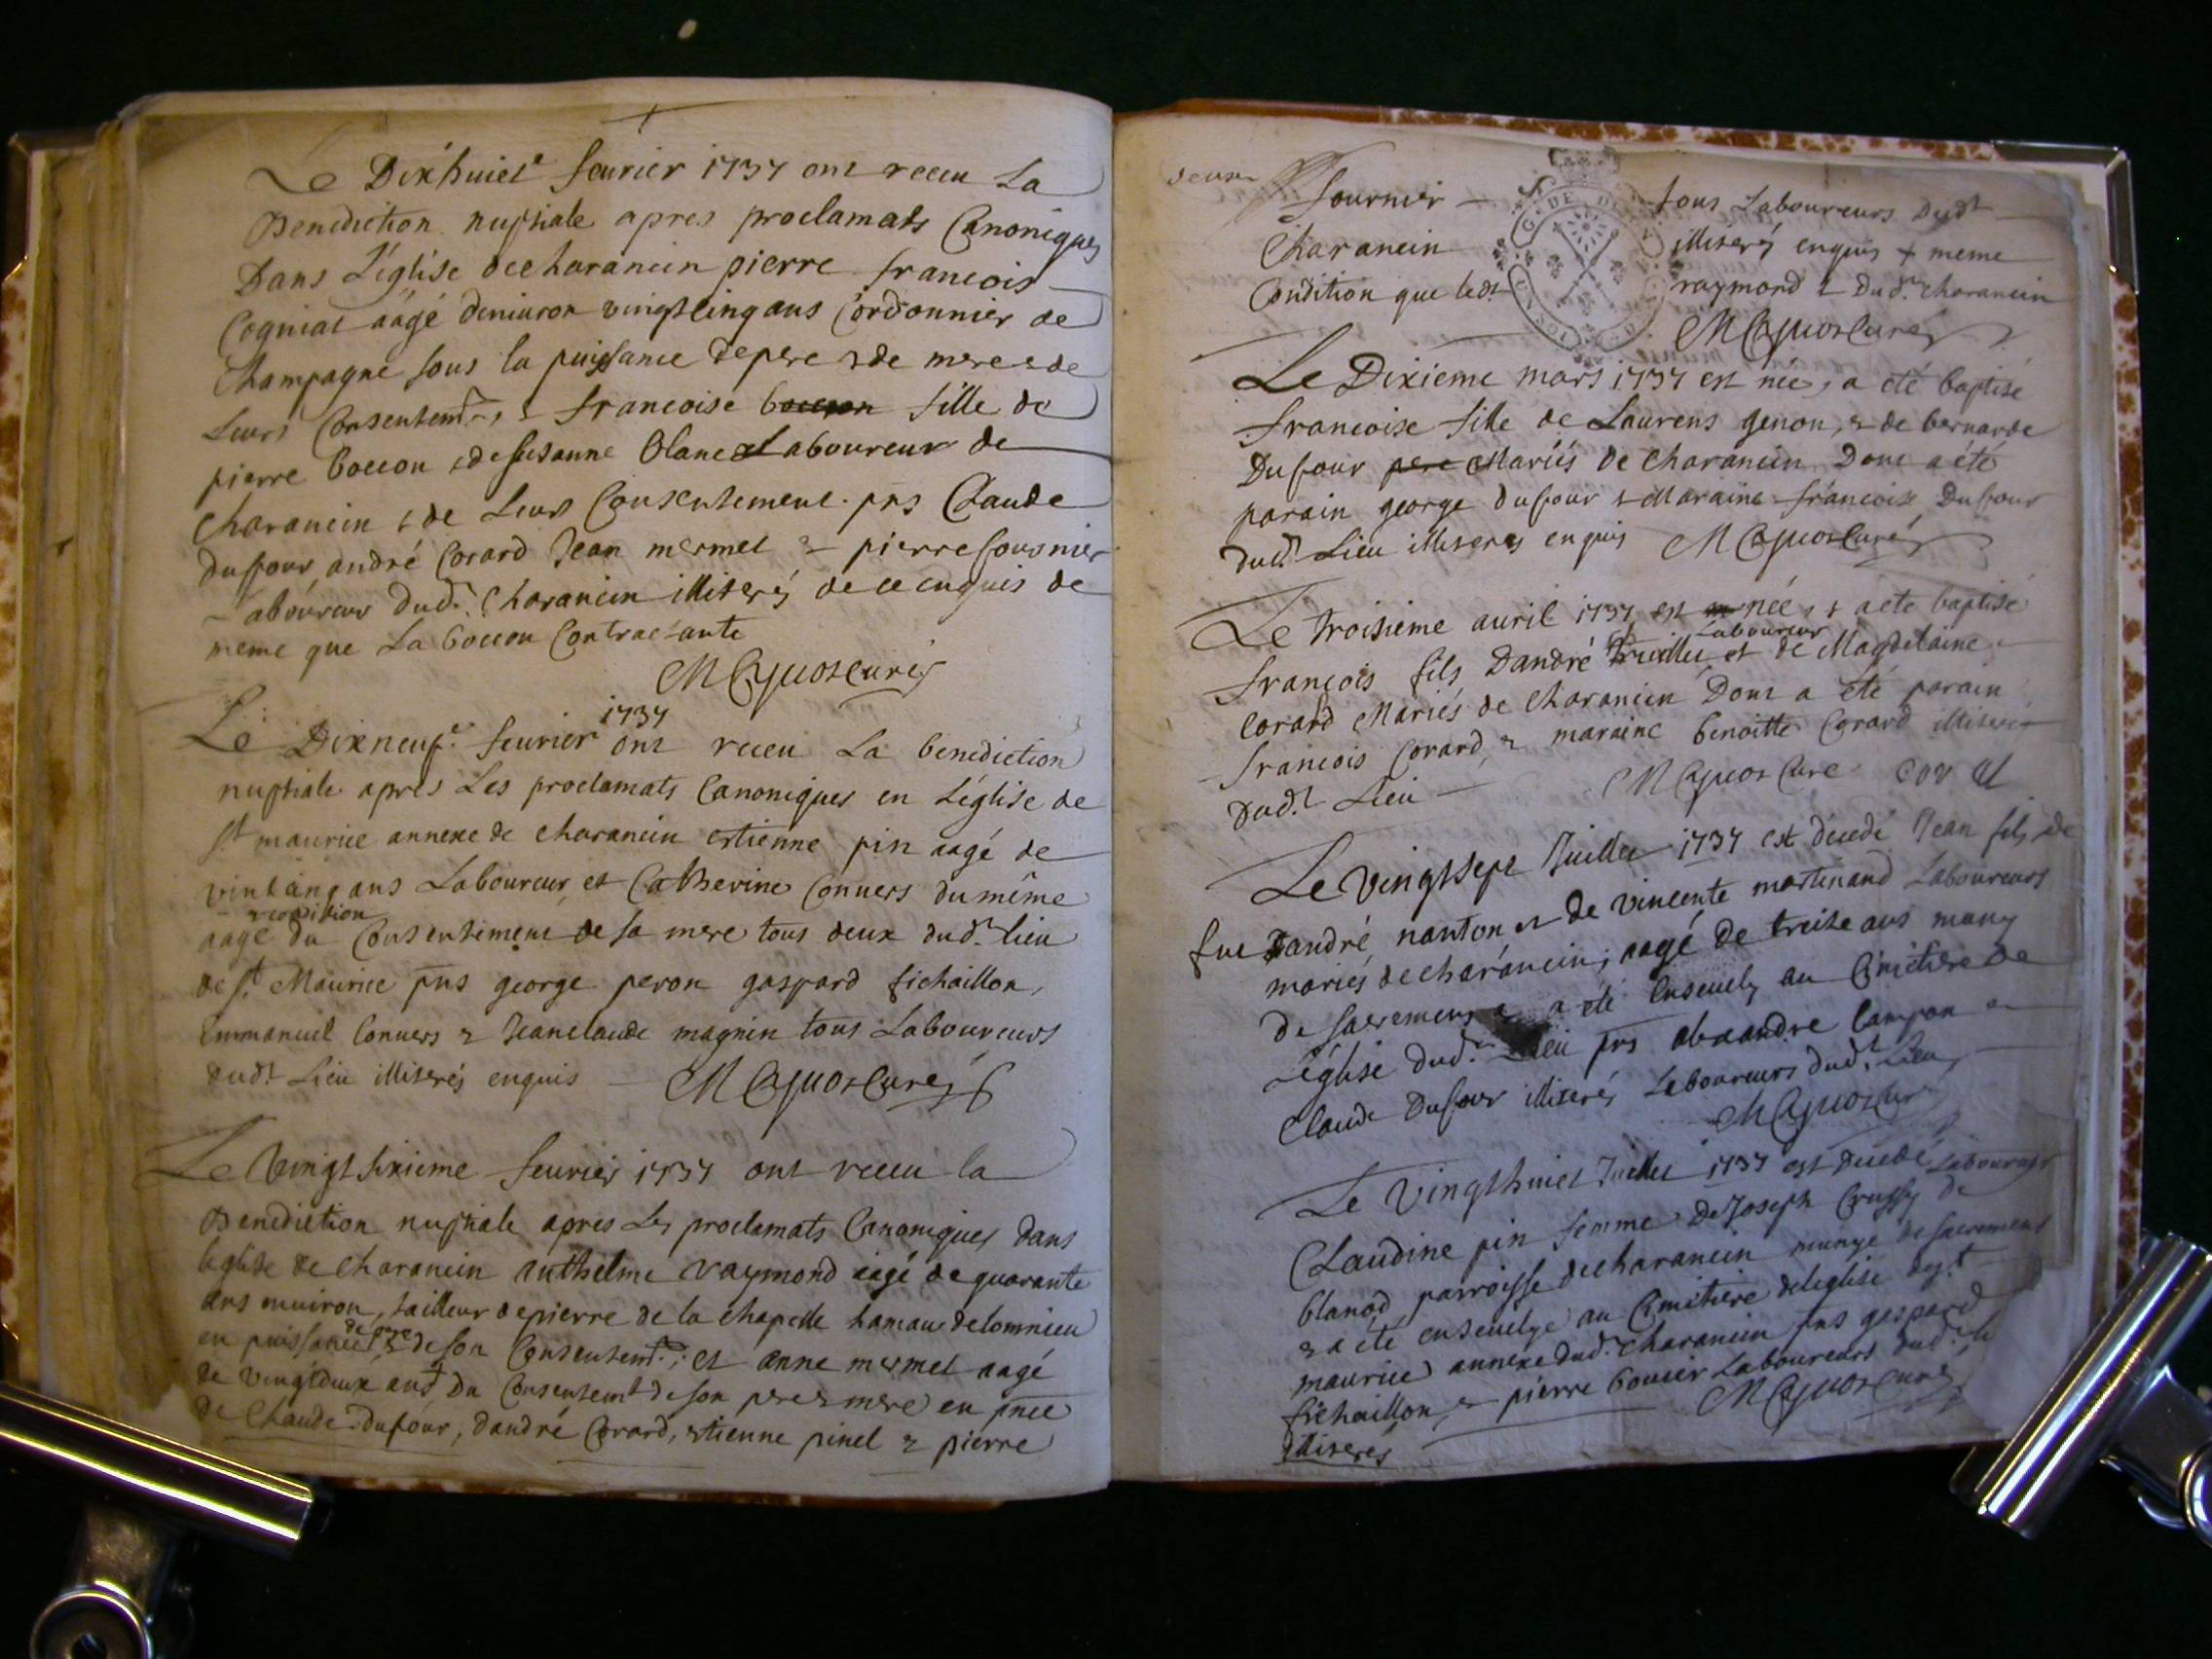 Le Dixhuict fevrier 1737 ont receu La
Benediction nuptiale apres proclamats Canoniques
Dans L'église de charancin pierre francois
Cogniat aagé denviron vingtcinq ans Cordonnier de
Champagne sous la puissance de pere & de mere & de
Leurs Consentemt, & francoise boccon fille de
pierre boccon & de susanne blanc Laboureur de
charancin & de Leur Consentement pns Claude
dufour, andré Corard Jean mermet & pierre fournier
Laboureur dudt Charancin illiterés de ce enquis de
meme que La boccon Contractante
Le Dixneuf fevrier 1737 ont receu La benediction
nuptiale après Les proclamats Canoniques en L'église de
St maurice annexe de charancin estienne pin aagé de
vintcinq ans Laboureur, et Catherine Convers du même
aage & condition du Consentiment de sa mere tous deux dudt lieu
de St Maurice pns george peron gaspard fichaillon,
Emmanuel Convers & Jeanclaude magnin tous Laboureurs
dudt Lieu illiterés enquis
Le Vingt sixieme fevrier 1737 ont receu la
Benediction nuptiale apres Les proclamats Canoniques dans
l'eglise de charancin anthelme raymond aagé de quarante
ans environ, tailleur de pierre de la chapelle hamau de lomnieu
en puissance de pere & de son Consentemt; et anne mermet aagé
de vingtdeux ans Du Consentemt de son pere & mere en pnce
de Claude dufour, dandré Corard, etienne pinel & pierre
fournier tous Laboureurs Dudt
Charancin illiterés enquis & meme
Condition que ledt raymond & Dudt charancin
Le Dixieme mars 1737 est née, a été baptisé
francoise fille de Laurens genon, & de bernarde
Dufour pere Mariés de charancin Dont a été
parain george dufour & Maraine francoise Dufour
dudt Lieu illiteres enquis
Le troisieme avril 1737 est née, & a eté baptisé
francois fils Dandré Laboureur et de Magdelaine
Corard Mariés de charancin Dont a été parain
francois Corard, & maraine benoitte Corard illiteré
Dudt Lieu
Le vingtsept Juillet 1737 est décedé Jean fils de
fue Dandré nanton & de vincente martinand Laboureurs
mariés de charancin; aagé de treise ans muny
de sacremens & a été Ensevely au Cimitiere de
L'église dudt Lieu pns alexandre Campon &
Claude Dufour illiterés Laboureurs dudt Lieu
Le Vingthuict Juillet 1737 est décédé
Claudine pin femme De Joseph Crussy Laboureur de
blanod parroisse de charancin munye de sacremens
& a été ensevelye au Cimitiere de l'église de st
maurice annexe dudt charancin pns gaspard
fichaillon, & pierre bouvier Laboureurs dudt
illiterés